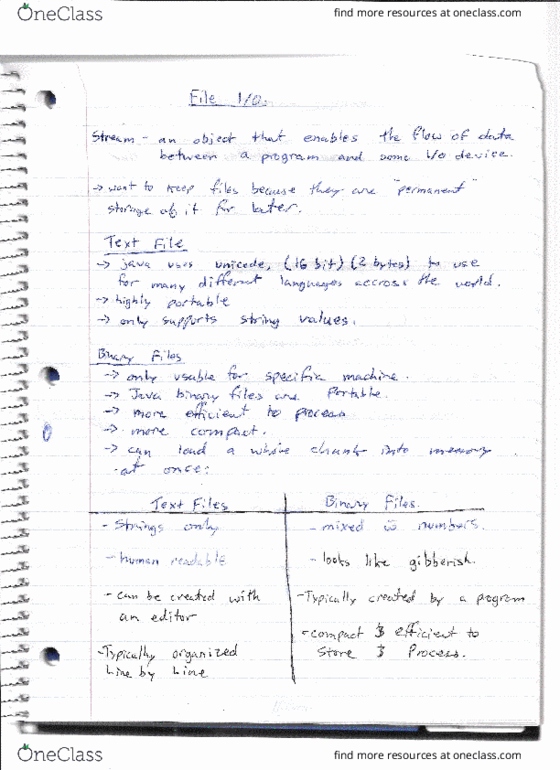 OneClass
find more resources at oneclass.com
File I/O.
Stream - an object that enables the flow of data
between a program and some I/o device.
→ want to keep files because they are "permanent"
storage of it for later.
Text File
→ java uses unicode, (16 bit) (2 bytes) to use
for many different languages accross the world.
→ highly portable
→ only supports string values.
Binary Files
→ only usable for specific machine.
→ Java binary files are Portable.
→ more efficient to process
→ more compact.
→ can load a whole chunk into memory
at once:
Text Files
Binary Files.
- Strings only
- mixed w numbers.
- human readable
- looks like gibberish.
- can be created with
an editor
- Typically created by a program
- compact & efficient to
Store & Process.
- Typically organized
Line by Line
OneClass
find more resources at oneclass.com